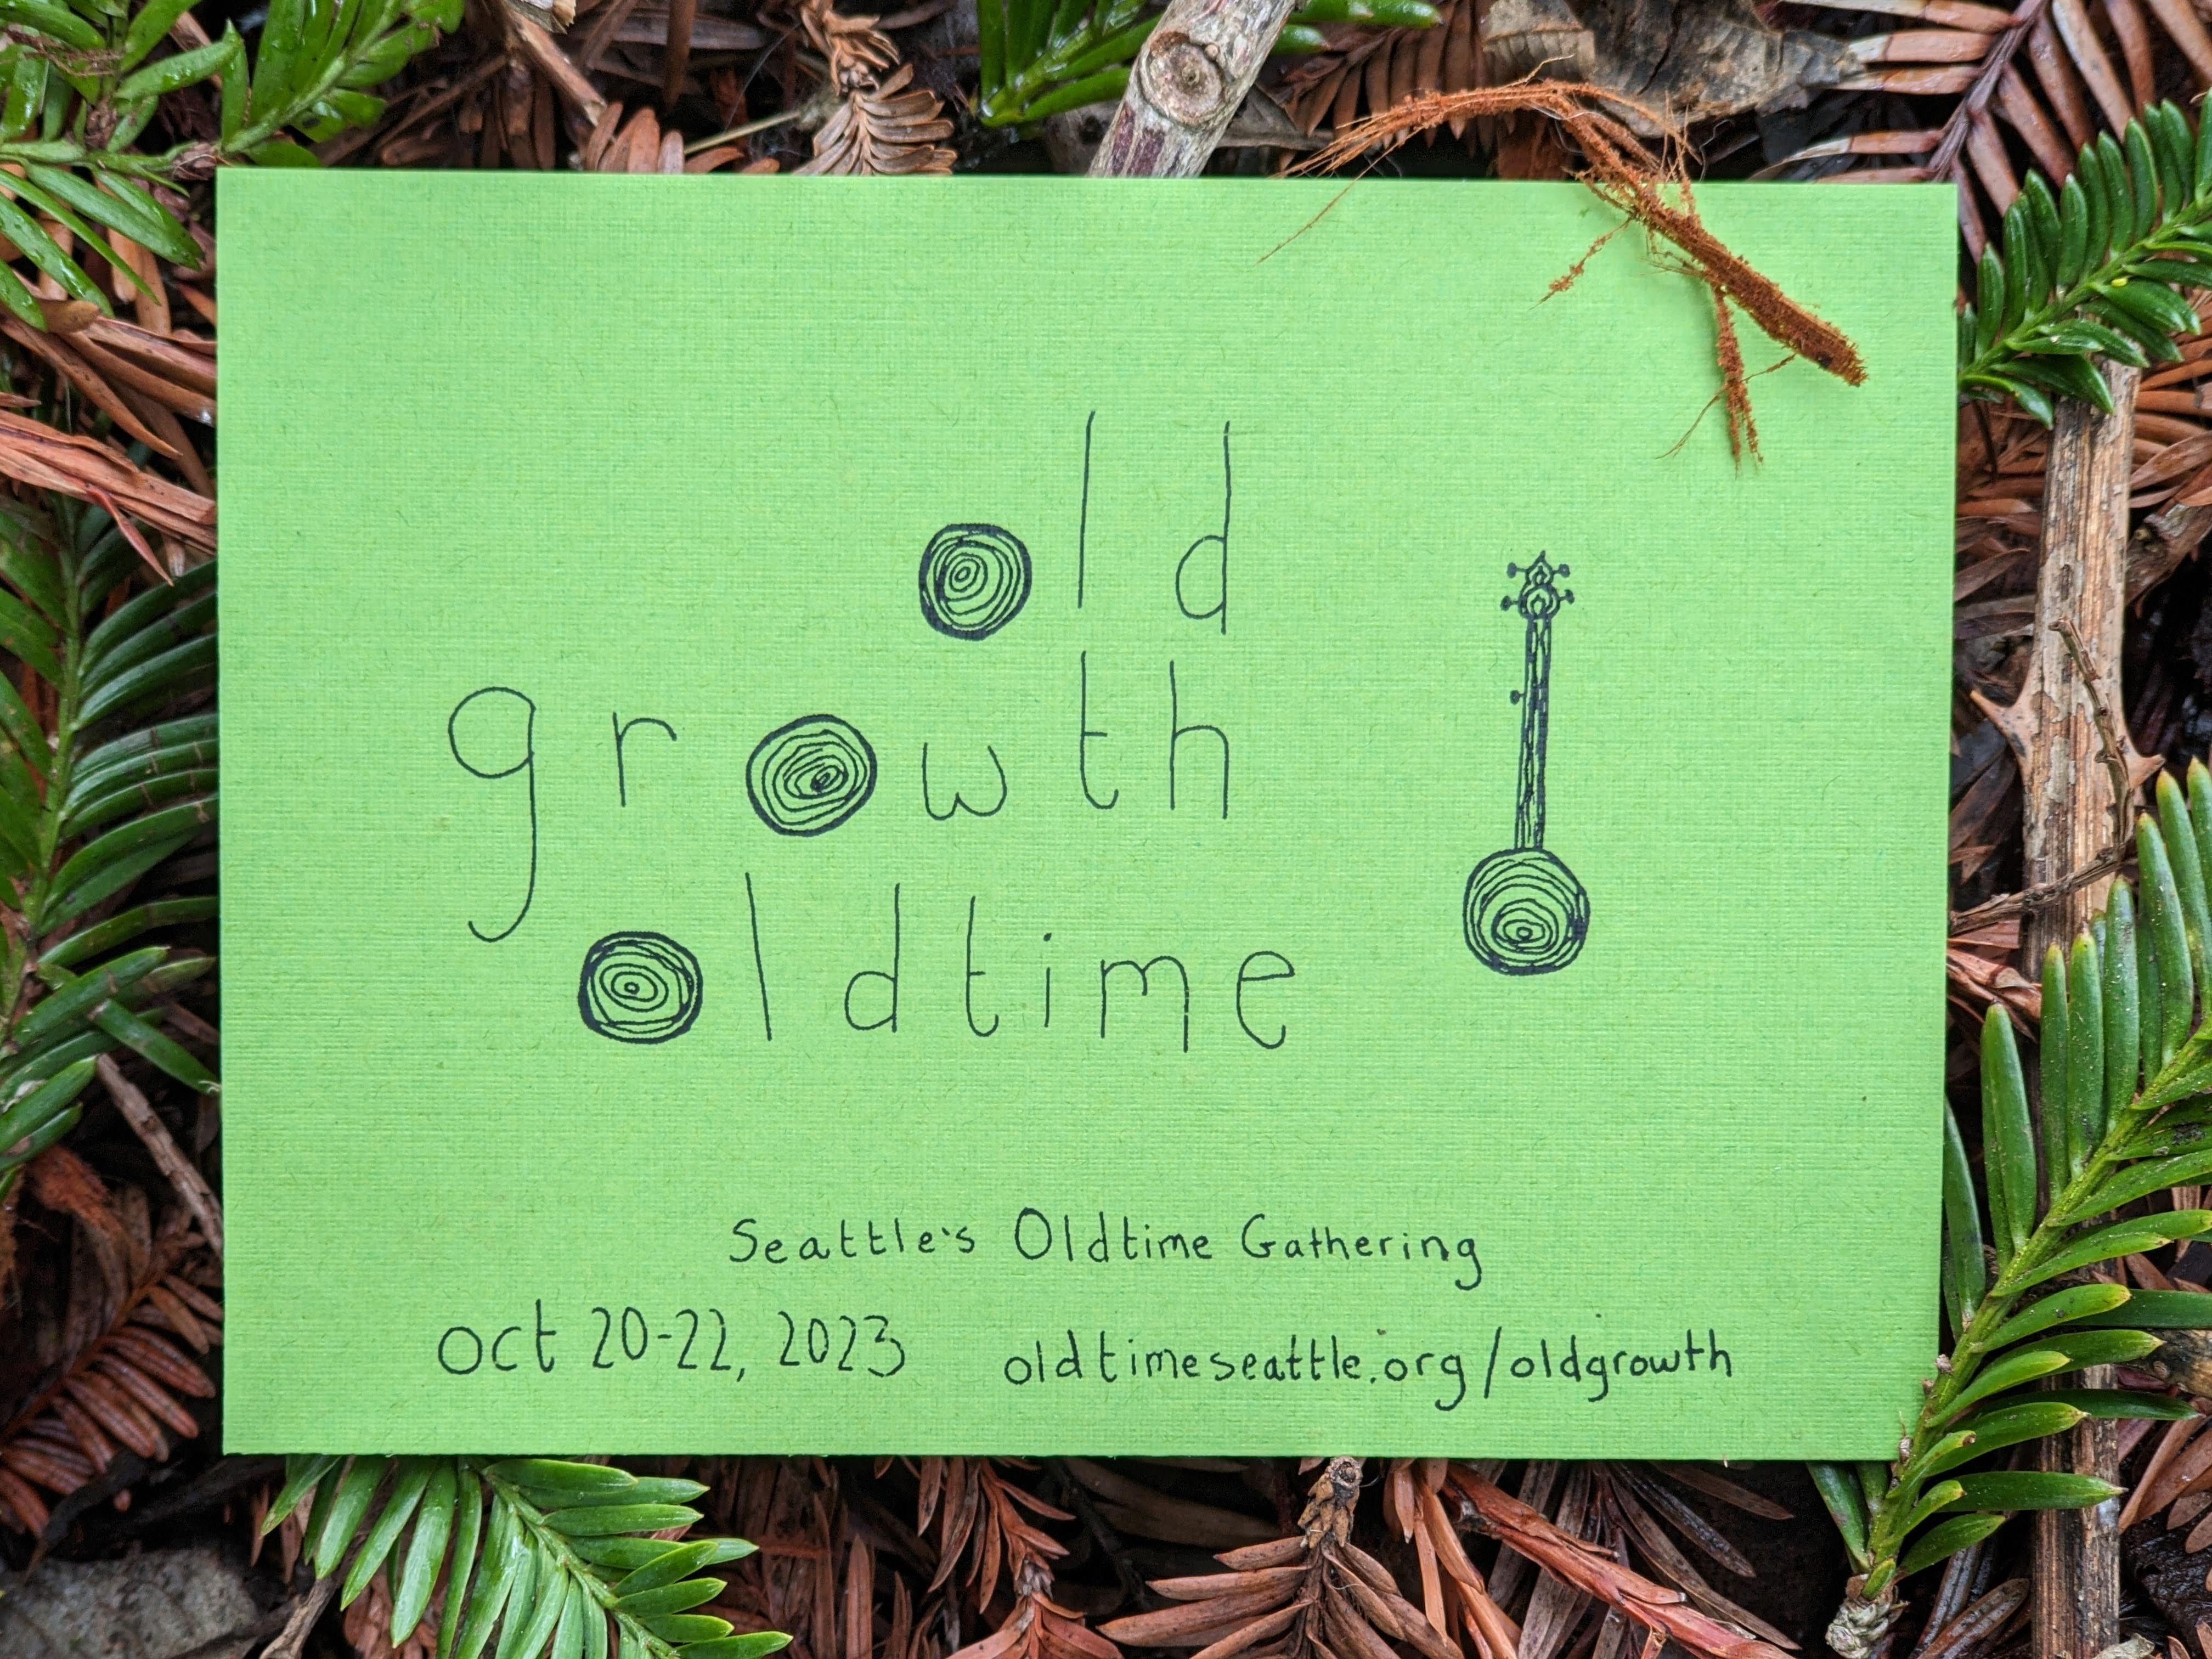 old
growth
oldtime
Seattle's Oldtime Gathering
oct 20-22, 2023 oldtimeseattle.org/oldgrowth